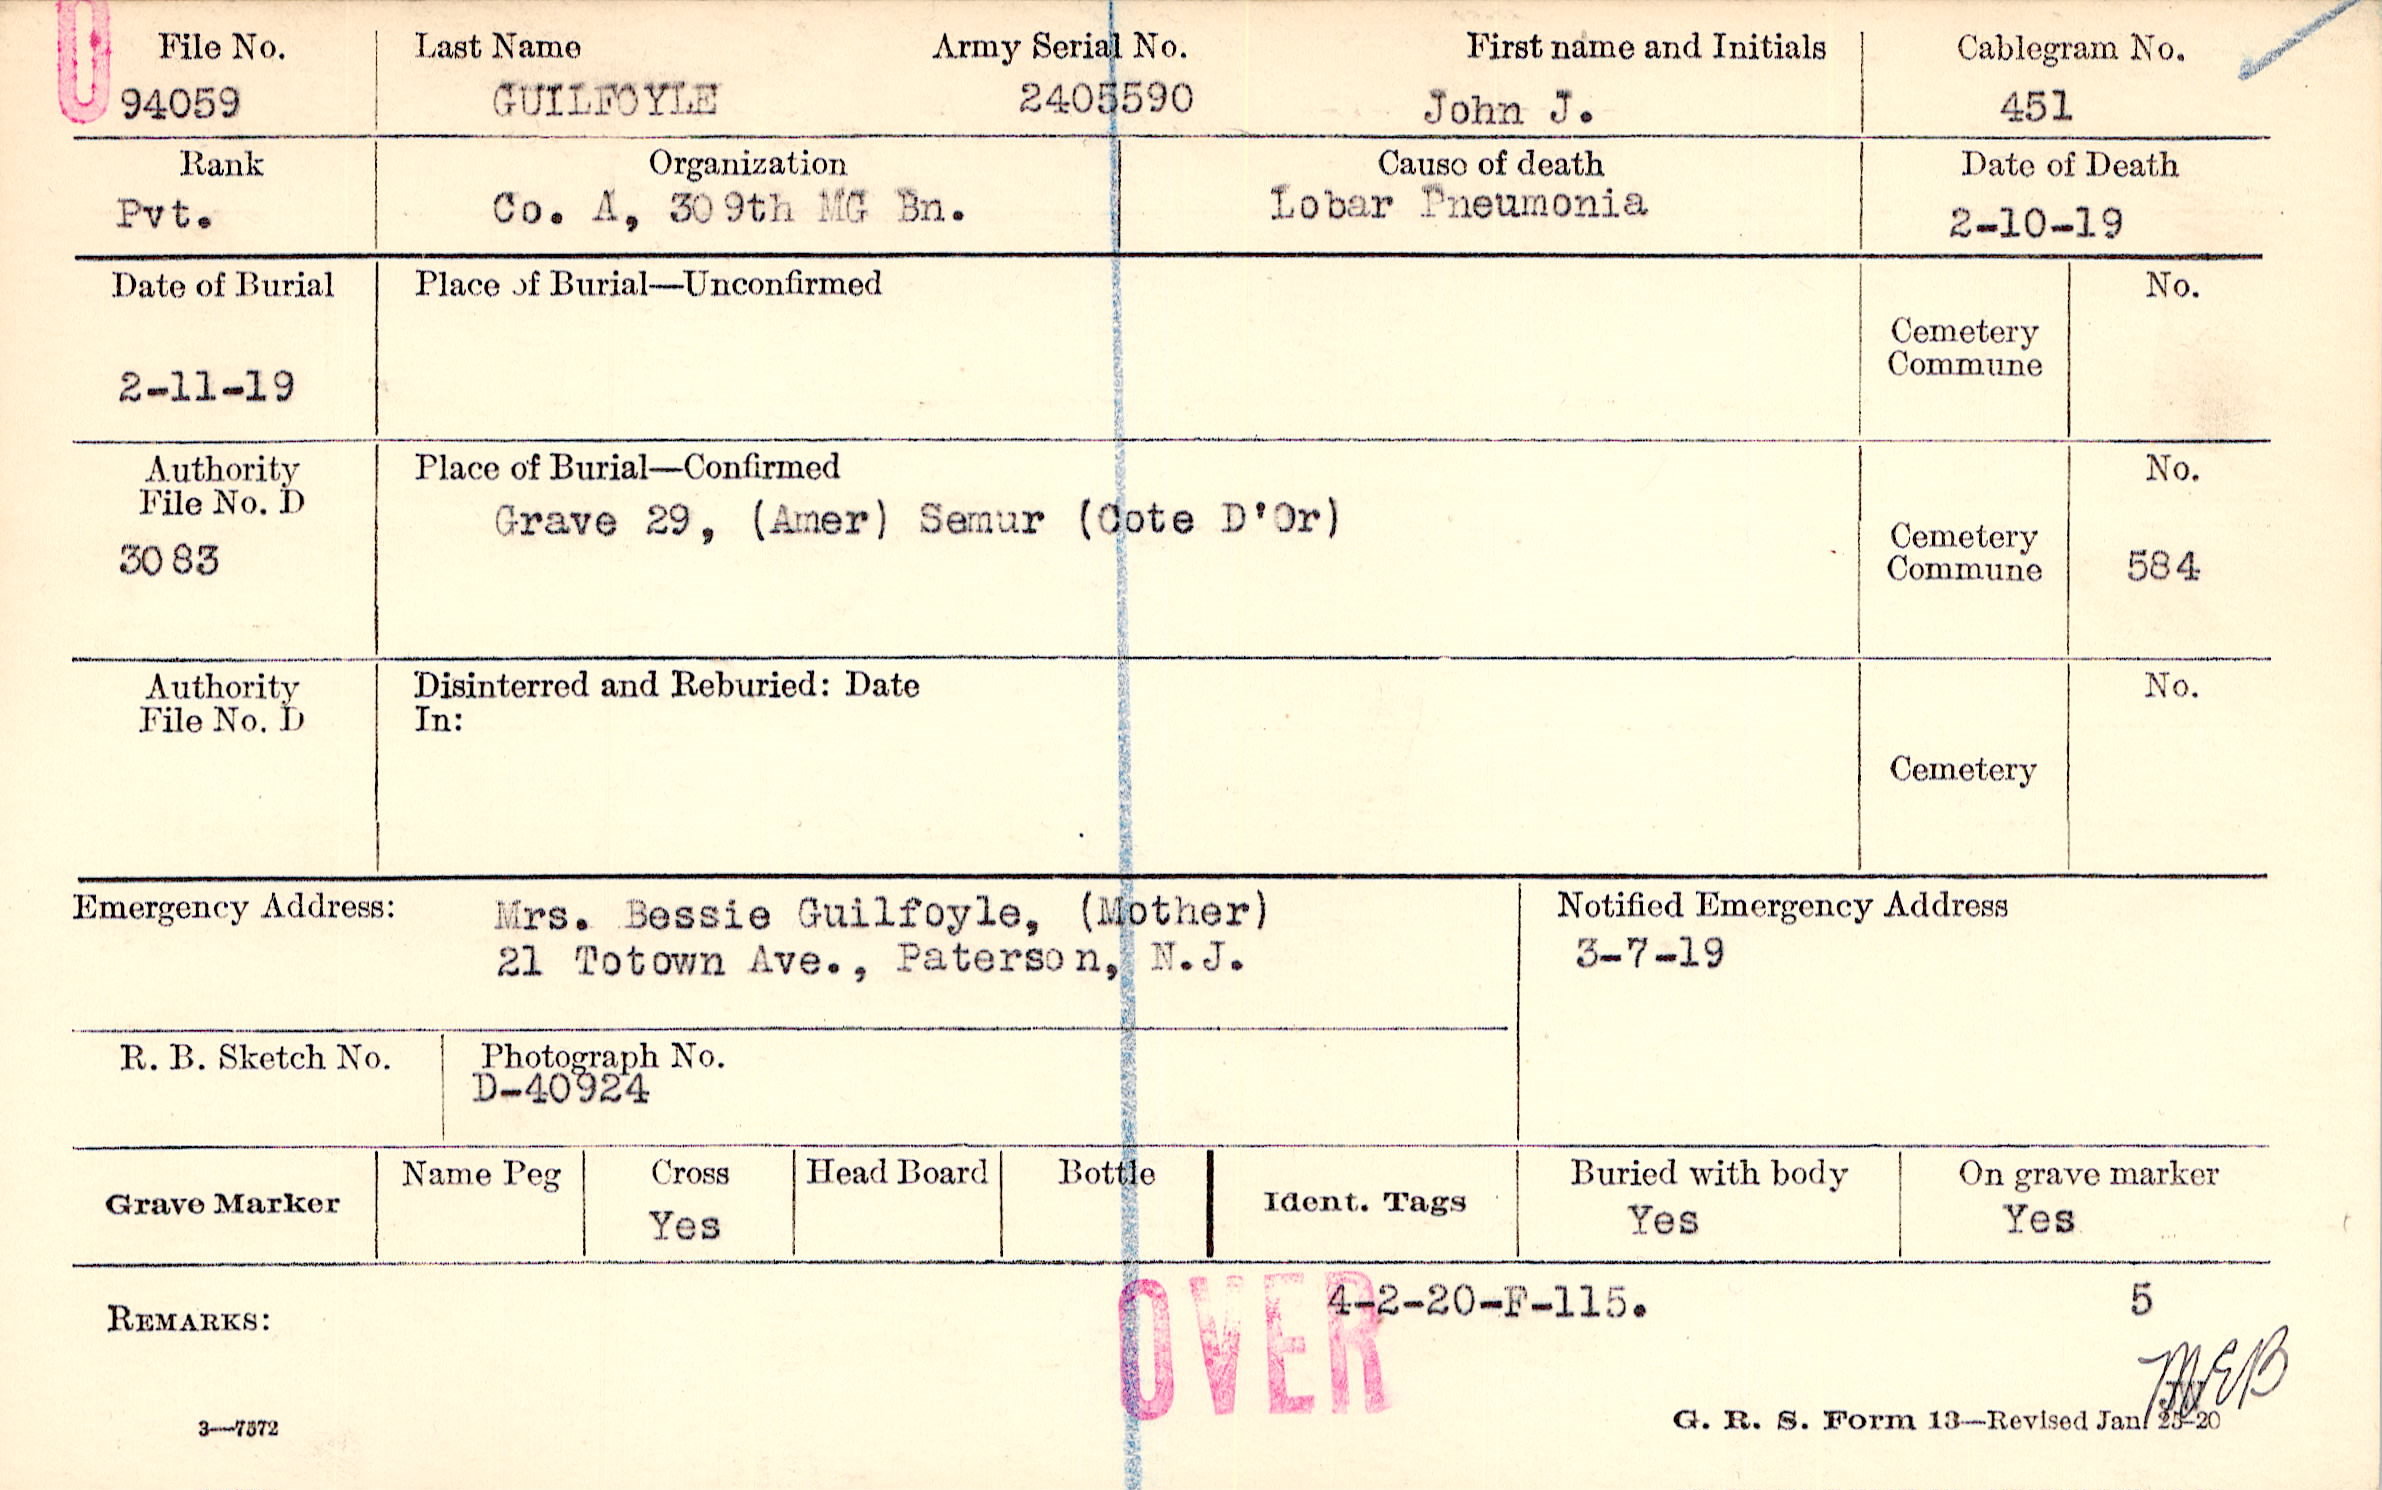 File No. Last Name Army Serial No. First name and Initials Cablegram No.
94059 GUILFOYLE 2405590 John J. 451
Rank Organization Cause of death Date of Death
Pvt. Co. A, 309th MG Bn. Lobar Pneumonia 2-10-19
Date of Burial Place of Burial—Unconfirmed No.
Cemetery
Commune
2-11-19
Authority Place of Burial—Confirmed No.
File No. D
Grave 29, (Amer) Semur (Cote D'Or)
Cemetery
3083 Commune 584
Authority Disinterred and Reburied: Date No.
File No. D In:
Cemetery
Emergency Address: Mrs. Bessie Guilfoyle, (Mother) Notified Emergency Address
21 Totown Ave., Paterson, N.J. 3-7-19
R. B. Sketch No. Photograph No.
D-40924
Grave Marker Name Peg Cross Head Board Bottle Ident. Tags Buried with body On grave marker
Yes Yes Yes
4-2-20-F-115. 5
REMARKS: OVER
MEB
3—7572 G. R. S. Form 13—Revised Jan. 25-20